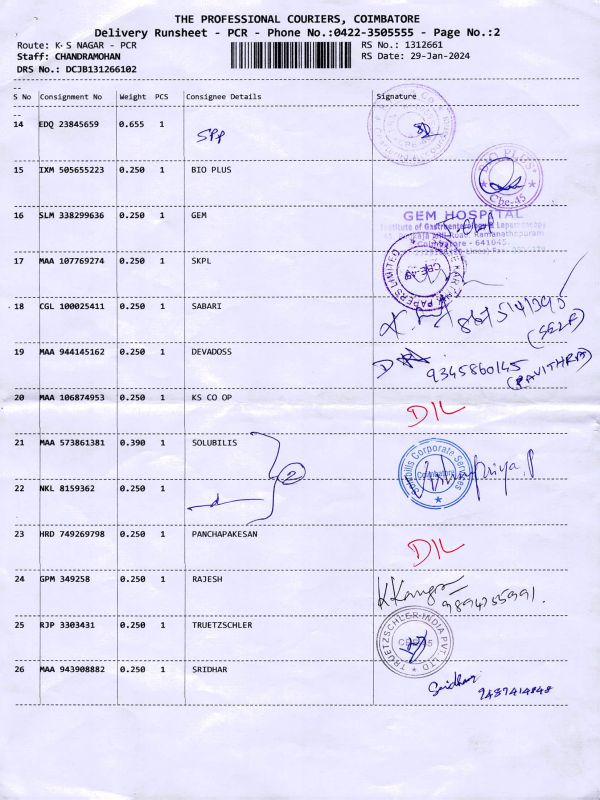 THE PROFESSIONAL COURIERS, COIMBATORE
Delivery Runsheet - PCR - Phone No.:0422-3505555 - Page No.:2
Route: K·S NAGAR - PCR RS No.: 1312661
Staff: CHANDRAMOHAN RS Date: 29-Jan-2024
DRS No.: DCJB131266102
S No Consignment No Weight PCS Consignee Details Signature
14 EDQ 23845659 0.655 1
SPP
15 IXM 505655223 0.250 1 BIO PLUS
BIO PLUS
Cbe-45
16 SLM 338299636 0.250 1 GEM
GEM HOSPITAL
Institute of Gastroenterology & Laparoscopy
Ramanathapuram
Coimbatore - 641045.
17 MAA 107769274 0.250 1 SKPL
PAPERS LIMITED
CBE-45
18 CGL 100025411 0.250 1 SABARI
(SELF)
19 MAA 944145162 0.250 1 DEVADOSS
9345860145
(PAVITHRA)
20 MAA 106874953 0.250 1 KS CO OP
D/L
21 MAA 573861381 0.390 1 SOLUBILIS
2
Solubilis Corporate Services
Coimbatore
22 NKL 8159362 0.250 1
23 HRD 749269798 0.250 1 PANCHAPAKESAN
D/L
24 GPM 349258 0.250 1 RAJESH
25 RJP 3303431 0.250 1 TRUETZSCHLER
TRUETZSCHLER-INDIA PVT. LTD
CBE-45
26 MAA 943908882 0.250 1 SRIDHAR
Sridhar
9487414848